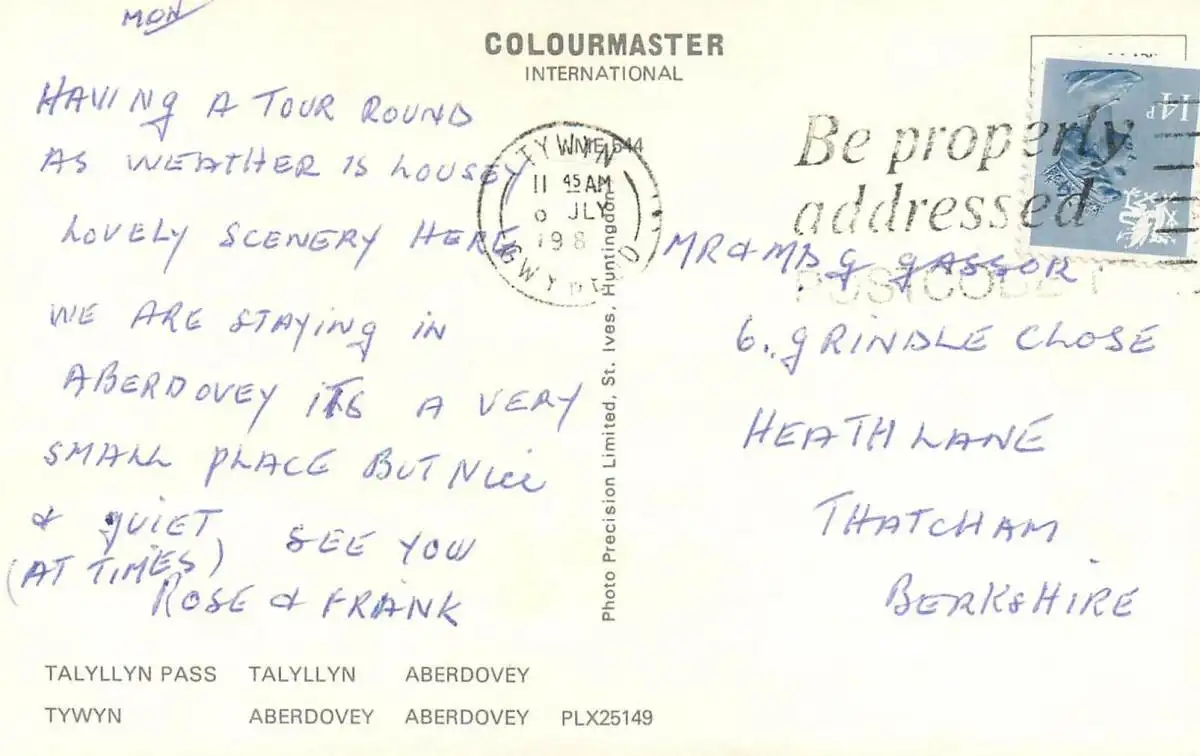 MON
HAVING A TOUR ROUND
AS WEATHER IS LOUSEY
LOVELY SCENERY HERE
WE ARE STAYING IN
ABERDOVEY ITS A VERY
SMALL PLACE BUT NICE
& QUIET, SEE YOU
(AT TIMES)
ROSE & FRANK
TALYLLYN PASS TALYLLYN ABERDOVEY
TYWYN ABERDOVEY ABERDOVEY PLX25149
COLOURMASTER
INTERNATIONAL
Photo Precision Limited, St. Ives, Huntingdon
TYWYN
11 45 AM
JLY
198
GWYNEDD
Be properly
addressed
POSTCODE
14P
MR & MRS G
6, GRINDLE CLOSE
HEATH LANE
THATCHAM
BERKSHIRE